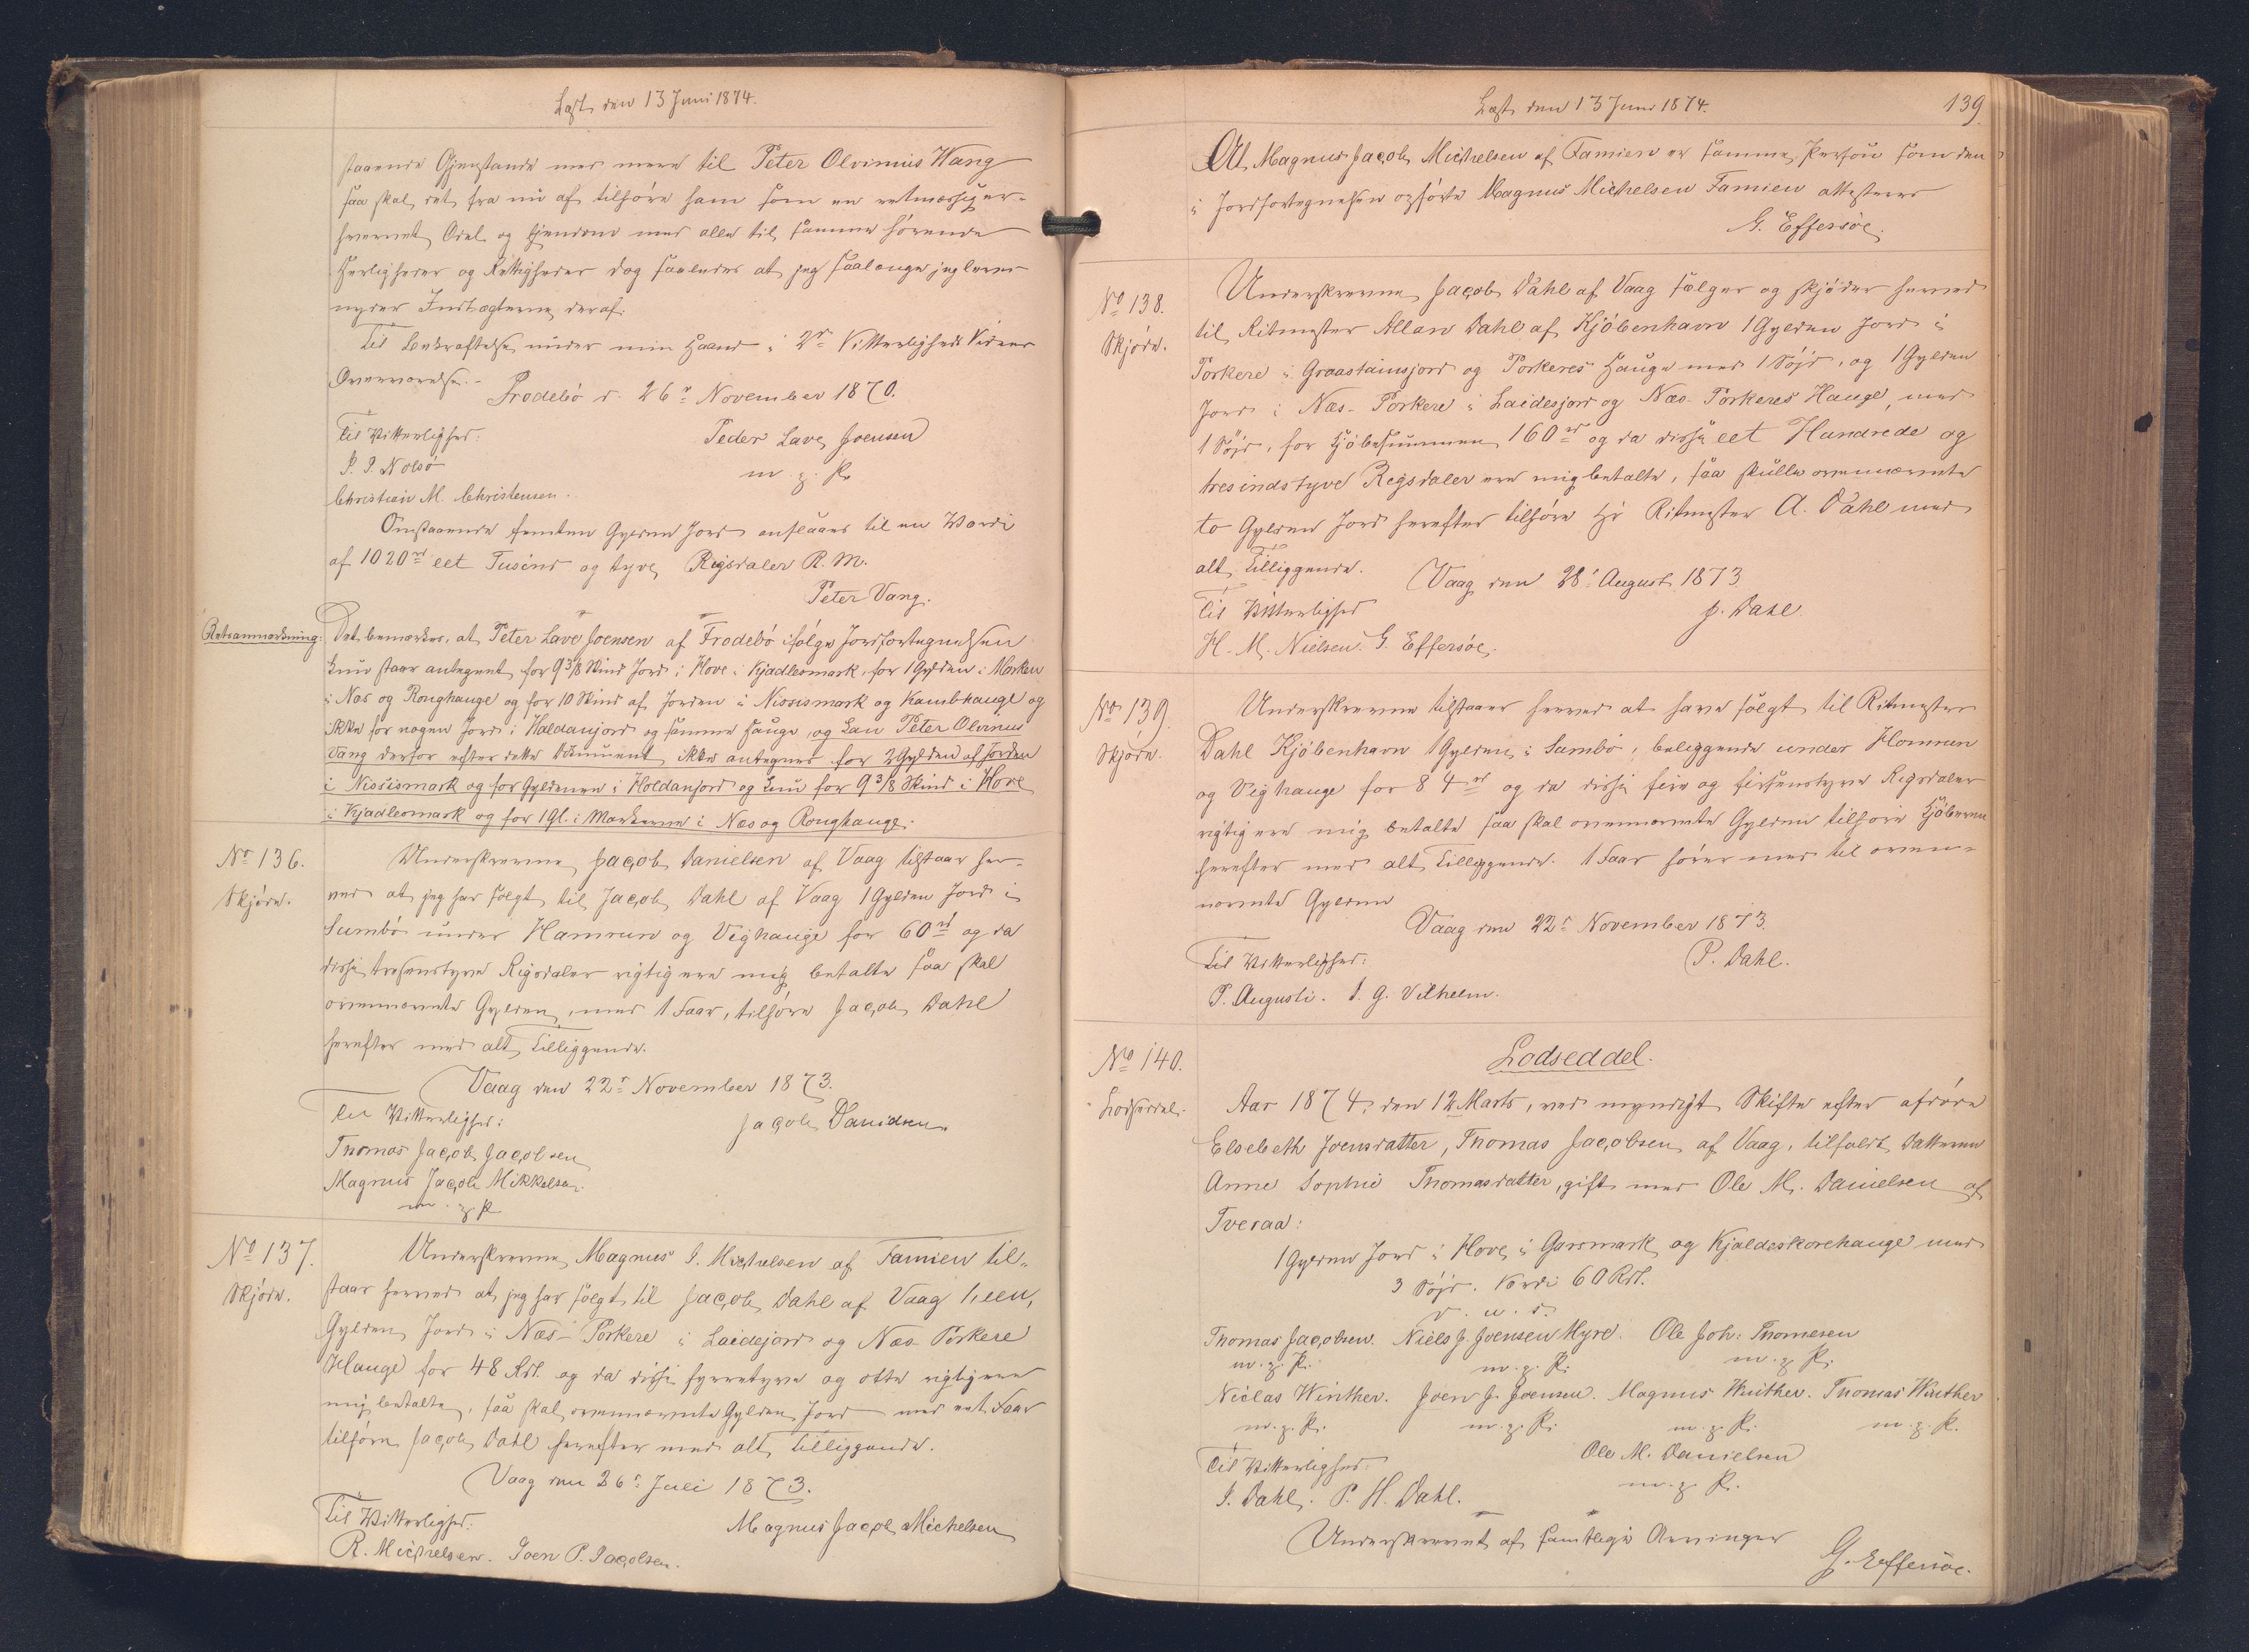 Læst den 13 Juni 1874.
staaende Gjenstande med mere til Peter Olvinius Wang
saa skal det fra nu af tilhøre ham som en retmæssig er-
hvervet Odel og Ejendom med alle til samme hørende
Herligheder og Rettigheder dog saaledes at jeg saalænge jeg lever
nyder Indtægterne deraf.
Til Bekræftelse under min Haand i 2de Vitterligheds Vidners
Overværelse.-
Frodebö d. 26de November 1870.
Til Vitterlighed:
Peder Lave Joensen
P. P. Nolsö
m. g. P.
Christian M. Christensen.
Omstaaende femten Gylden Jord ansláaes til en Værdi
af 1020rd eet Tusind og tyve Rigsdaler R. M.
Peter Vang.
Retsanmærkning:
Det bemærkes, at Peter Lave Joensen af Frodebö ifølge Jordfortegnelsen
kun staar antegnet for 9 3/8 Skind Jord i Hove i Kjadlesmark, for 1 Gylden i Marken
i Næs og Ronghauge og for 10 Skind af Jorden i Nissismark og Kambhauge og
ikke for nogen Jord i Haldanjord og samme Hauge, og kan Peter Olvinus
Vang derfor efter dette Document ikke antegnes for 2 Gylden af Jorden
i Nissismark og for Gyldenen i Holdanjord og kun for 9 3/8 Skind i Hove
i Kjadlesmark og for 1 Gl. i Markerne i Næs og Ronghauge.
No 136.
Skjøde.
Underskrevne Jacob Danielsen af Vaag tilstaar her-
ved at jeg har solgt til Jacob Dahl af Vaag 1 Gylden Jord i
Sumbö under Hamrun og Veghauge for 60rd og da
disse tresenstyve Rigsdaler rigtig ere mig betalte saa skal
ovennævnte Gylden, med 1 Faar, tilhøre Jacob Dahl
herefter med alt Tilliggende.
Vaag den 22de November 1873.
Til Vitterlighed:
Jacob Danielsen
Thomas Jacob Jacobsen
Magnus Jacob Mikkelsen.
m. g. P.
No 137.
Skjøde.
Underskrevne Magnus J. Michelsen af Famien til-
staar herved at jeg har solgt til Jacob Dahl af Vaag 1, een,
Gylden Jord i Næs-Porkere i Laidejord og Næs Porkere
Hauge for 48 Rdl. og da disse fyrretyve og otte rigtig ere
mig betalte, saa skal ovennævnte Gylden Jord med eet Faar
tilhøre Jacob Dahl herefter med alt Tilliggende.
Vaag den 26de Juli 1873.
Til Vitterlighed:
Magnus Jacob Michelsen
R. Michelsen. Joen P. Jacobsen.
Læst den 13 Juni 1874.
139
At Magnus Jacob Michelsen af Famien er samme Person som den
i Jordfortegnelsen opførte Magnus Michelsen Famien attesteres
G. Effersöe.
No 138.
Skjøde.
Underskrevne Jacob Dahl af Vaag sælger og skjøder herved
til Ritmester Allan Dahl af Kjöbenhavn 1 Gylden Jord i
Porkere i Graastainsjord og Porkeres Hauge med 1 Söjd, og 1 Gylden
Jord i Næs-Porkere i Laidesjord og Næs-Porkeres Hauge, med
1 Söjd, for Kjöbesummen 160rd og da disse eet Hundrede og
tresindstyve Rigsdaler ere mig betalte, saa skulle ovennævnte
to Gylden Jord herefter tilhøre Hr Ritmester A. Dahl med
alt Tilliggende.
Vaag den 28de August 1873
Til Vitterlighed
J. Dahl.
H. M. Nielsen. G. Effersöe.
No 139.
Skjøde.
Underskrevne tilstaaer herved at have solgt til Ritmester
Dahl Kjöbenhavn 1 Gylden i Sumbö, beliggende under Homrun
og Veghauge for 84rd og da disse fire og firsenstyve Rigsdaler
rigtig ere mig betalte saa skal ovennævnte Gylden tilhøre Kjöberen
herefter med alt Tilliggende. 1 Faar hører med til oven-
nævnte Gylden
Vaag den 22de November 1873.
Til Vitterlighed:
P. Dahl.
P. Augusti. J. G. Vilhelm.
No 140.
Lodseddel.
Lodseddel.
Aar 1874, den 12 Marts, ved myndigt Skifte efter afdöde
Elsebeth Joensdatter, Thomas Jacobsen af Vaag, tilfaldt Datteren
Anne Sophie Thomasdatter, gift med Ole M. Danielsen af
Tveraa:
1 Gylden Jord i Hove i Garsmark og Kjaldeskorehauge med
3 Söjd. Værdi 60 Rdl.
d. u. s.
Thomas Jacobsen. Niels J. Joensen Myre. Ole Joh: Thomesen
m. g. P. m. g. P. m. g. P.
Niclas Winther. Joen J. Joensen. Magnus Winther. Thomas Winther
m. g. P. m. g. P. m. g. P. m. g. P.
Til Vitterlighed:
Ole M. Danielsen
J. Dahl. P. H. Dahl.
m. g. P.
Underskrevet af samtlige Arvinger
G. Effersöe.